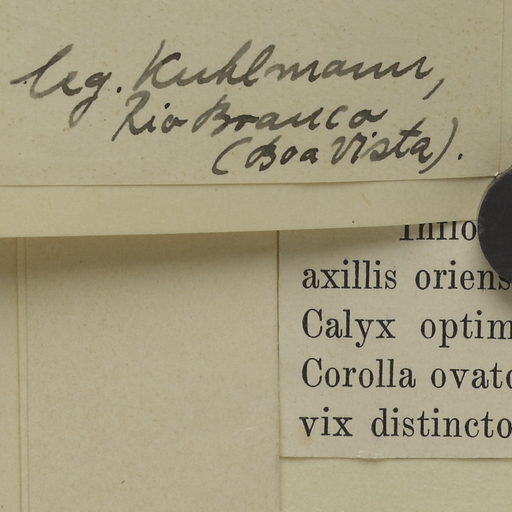 leg. Kuhlmann,
Rio Branco
(Boa Vista).
axillis oriens
Calyx optim
Corolla ovato
vix distincto